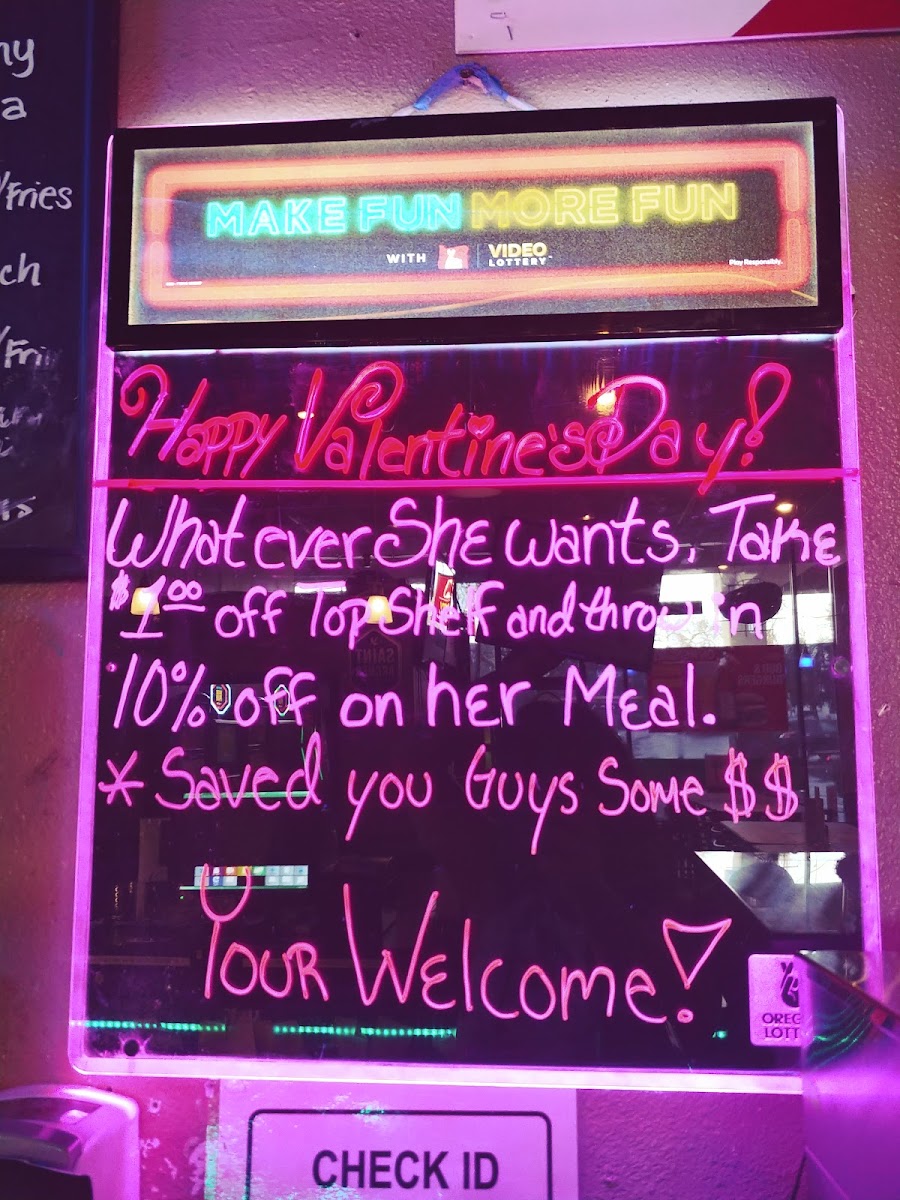 ny
a
/Fries
ch
/Fri
MAKE FUN MORE FUN
WITH VIDEO LOTTERY
Play Responsibly.
Happy Valentine's Day!
Whatever She wants, Take
$1.00 off Top Shelf and throw in
10% off on her Meal.
* Saved you Guys Some $$
Your Welcome!
OREG
LOTT
CHECK ID